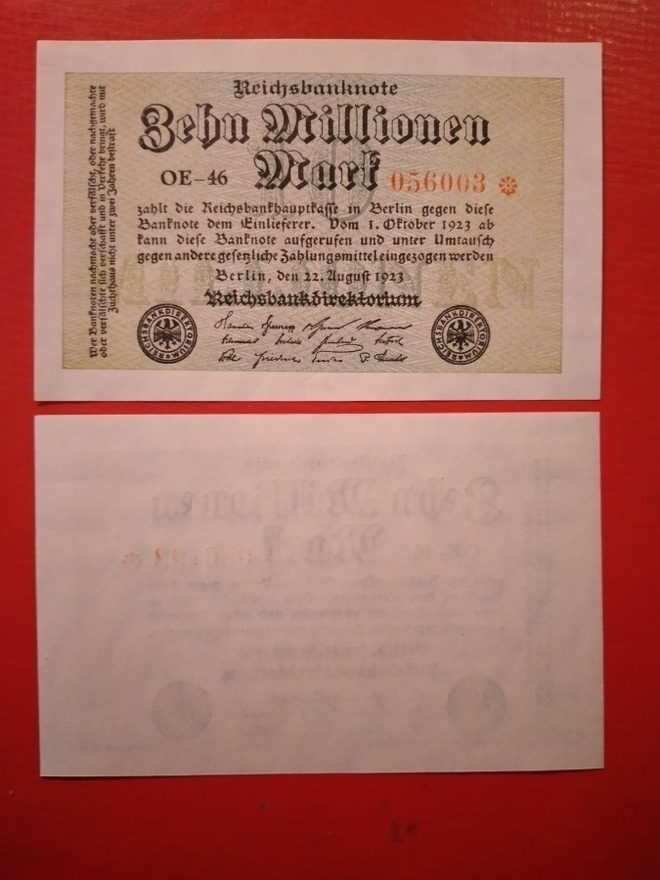 Reichsbanknote
Zehn Millionen
Mark
OE-46
056003 *
zahlt die Reichsbankhauptkasse in Berlin gegen diese
Banknote dem Einlieferer. Vom 1. Oktober 1923 ab
kann diese Banknote aufgerufen und unter Umtausch
gegen andere gesetzliche Zahlungsmittel eingezogen werden
Berlin, den 22. August 1923
Reichsbankdirektorium
REICHSBANKDIREKTORIUM
REICHSBANKDIREKTORIUM
Wer Banknoten nachmacht oder verfälscht, oder nachgemachte
oder verfälschte sich verschafft und in Verkehr bringt, wird mit
Zuchthaus nicht unter zwei Jahren bestraft